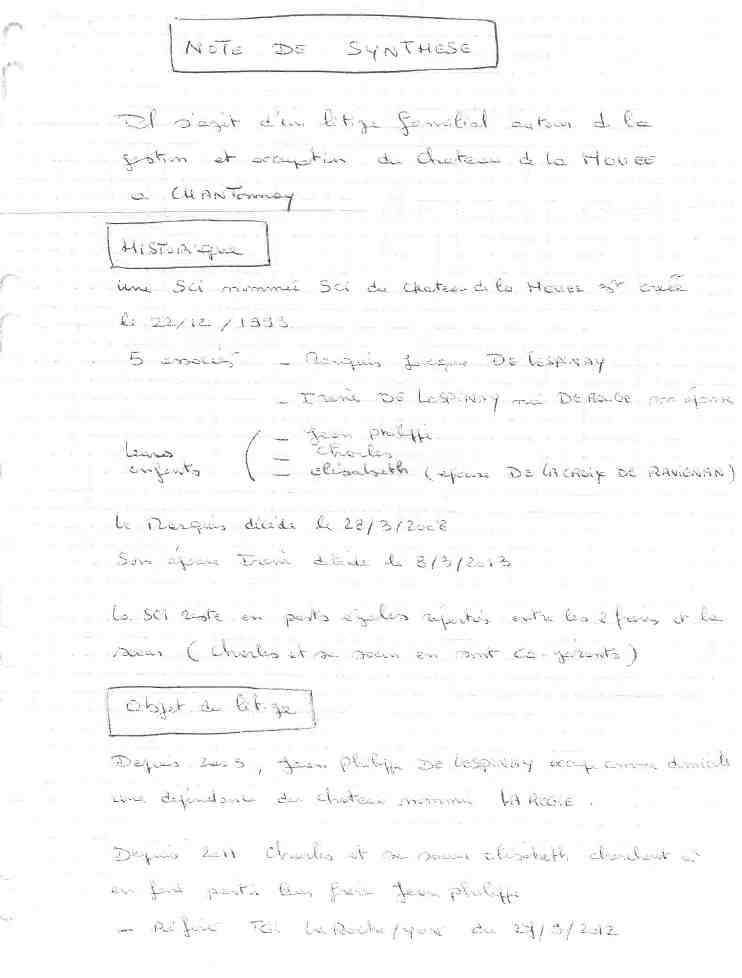 NOTE DE SYNTHESE
Il s'agit d'un litige familial autour de la
gestion et occupation du Chateau de la MOUEE
a CHANTonnay
HISTORique
une SCI nommée SCI du chateau de la MOUEE est créée
le 22/12/1993
5 associés - Marquis Jacques DE LESPINAY
- Irène DE LESPINAY née DEROUGE son épouse
Leurs enfants
- Jean Philippe
- Charles
- Elisabeth (épouse DE LACROIX DE RAVIGNAN)
Le Marquis décède le 28/3/2008
Son épouse Irène décède le 8/3/2013
La SCI reste en parts égales réparties entre les 2 frères et la
soeur (Charles et sa soeur en sont co-gérants)
Objet du litige
Depuis, Jean Philippe DE LESPINAY occupe comme domicile
une dépendance du chateau nommée LA REGIE.
Depuis 2011 Charles et sa soeur Elisabeth cherchent à
en faire partir leur frère Jean Philippe
- Référé TGI LaRoche/yon du 27/9/2012